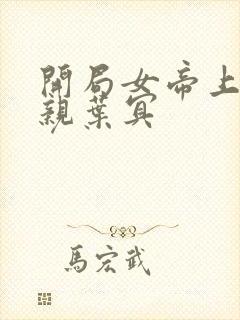 開局女帝上
親葉寘
馬宏武